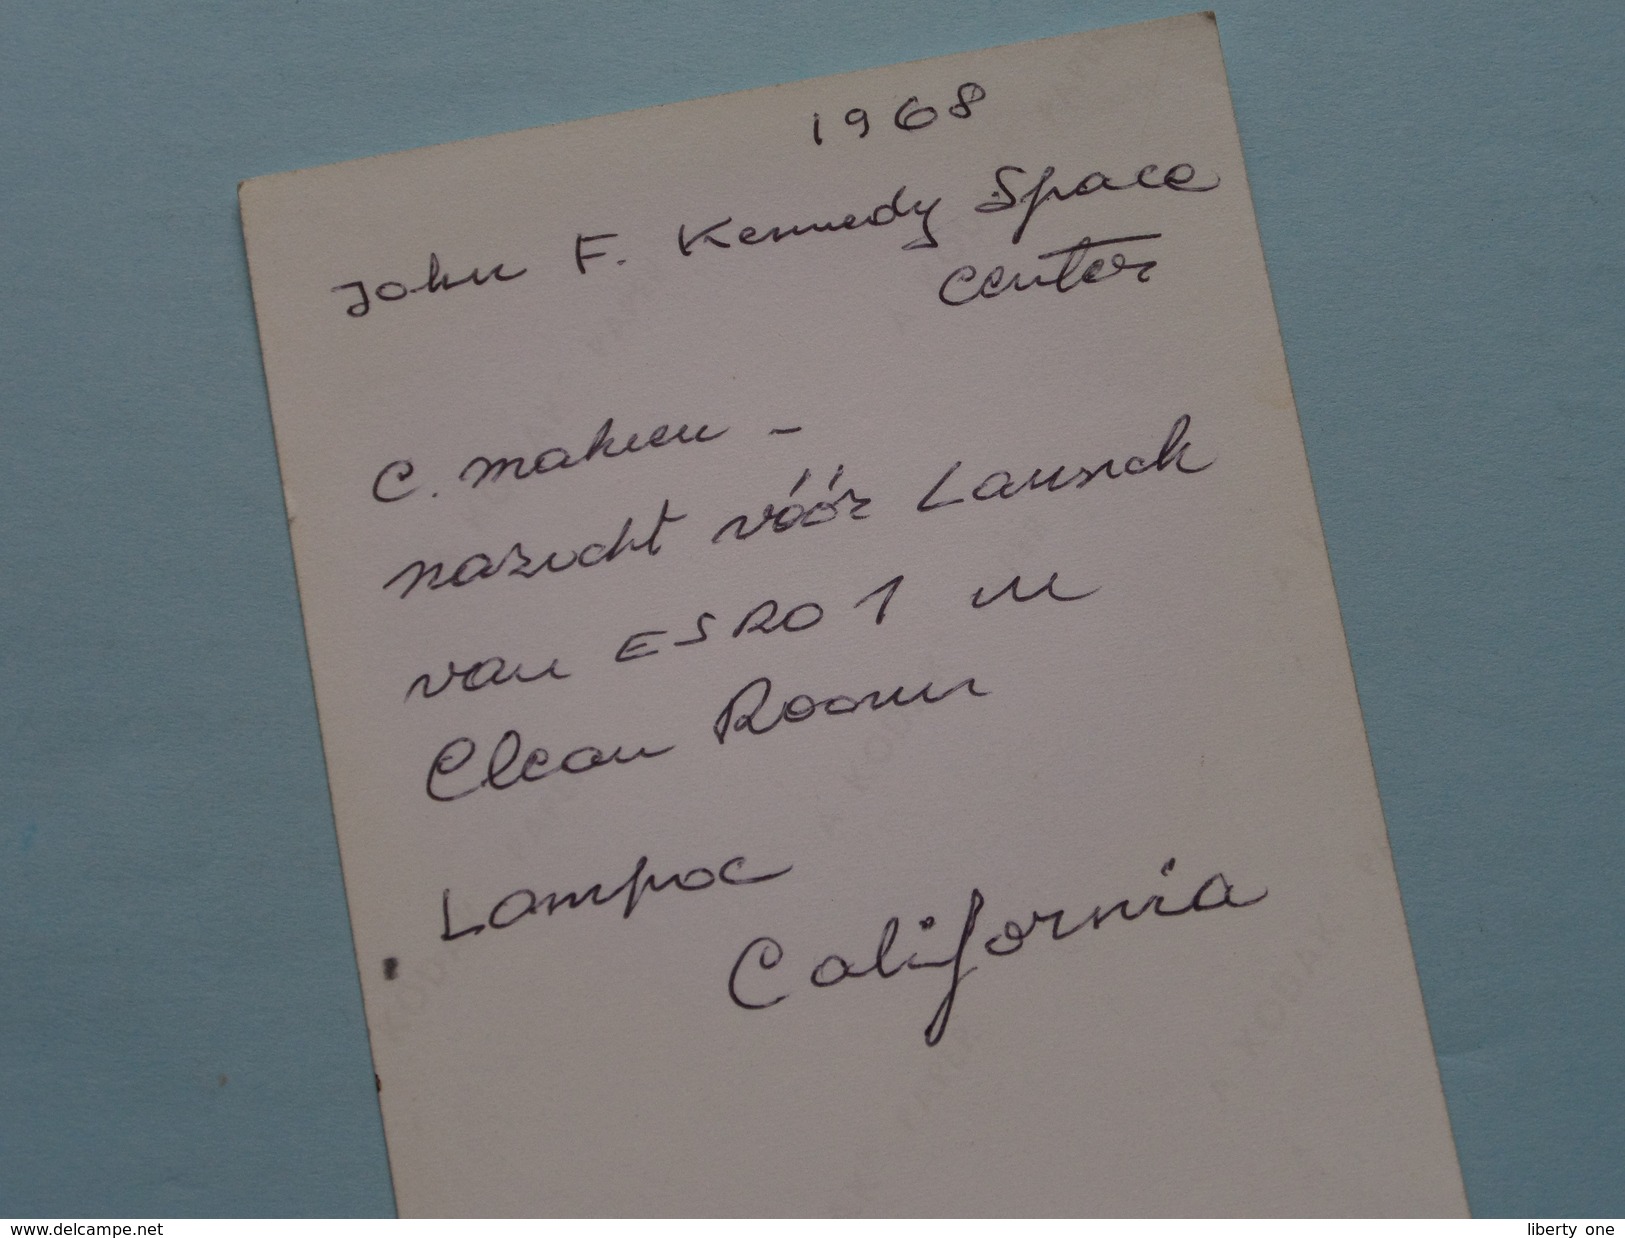 1968
John F. Kennedy Space
Center
C. Mahieu -
nazicht vóór Launch
van ESRO 1 in
Clean Room
Lompoc
California
www.delcampe.net
liberty_one